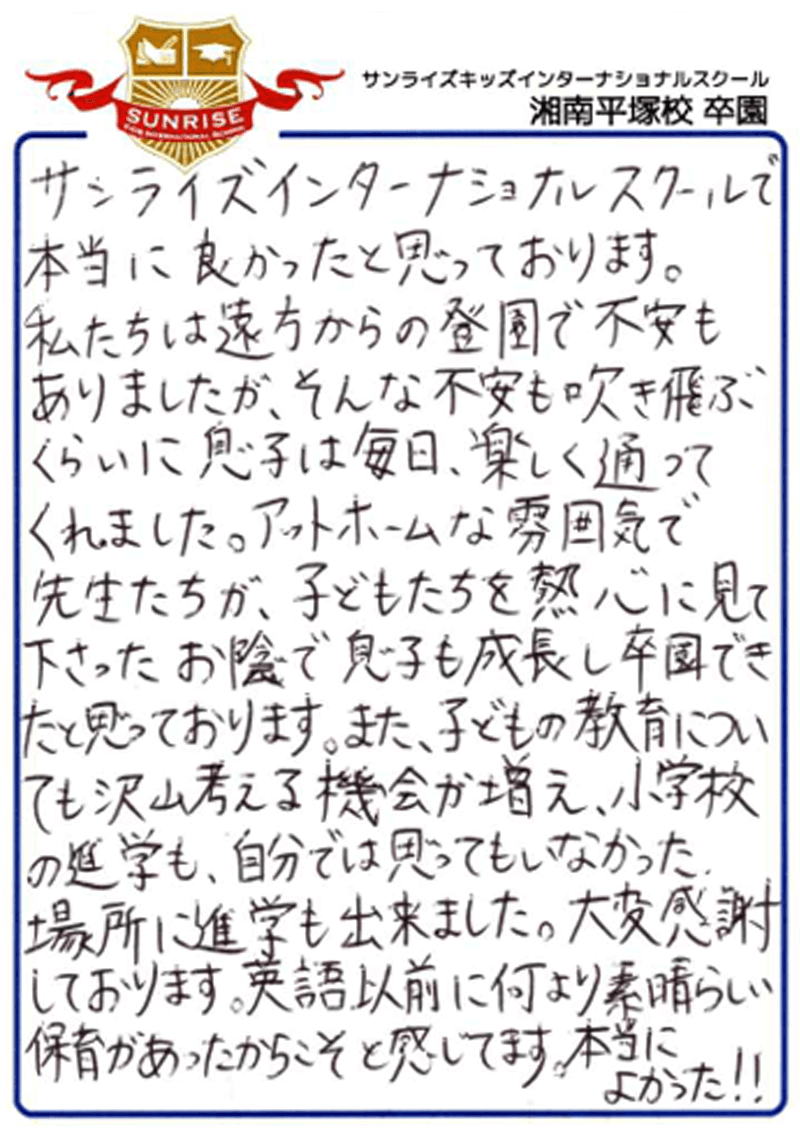 SUNRISE
KIDS INTERNATIONAL SCHOOL
サンライズキッズインターナショナルスクール
湘南平塚校 卒園
サンライズインターナショナルスクールで
本当に良かったと思っております。
私たちは遠方からの登園で不安も
ありましたが、そんな不安も吹き飛ぶ
くらいに息子は毎日、楽しく通って
くれました。アットホームな雰囲気で
先生たちが、子どもたちを熱心に見て
下さったお陰で息子も成長し卒園でき
たと思っております。また、子どもの教育につい
ても沢山考える機会が増え、小学校
の進学も、自分では思ってもいなかった
場所に進学も出来ました。大変感謝
しております。英語以前に何より素晴らしい
保育があったからこそと感じてます。本当に
よかった!!